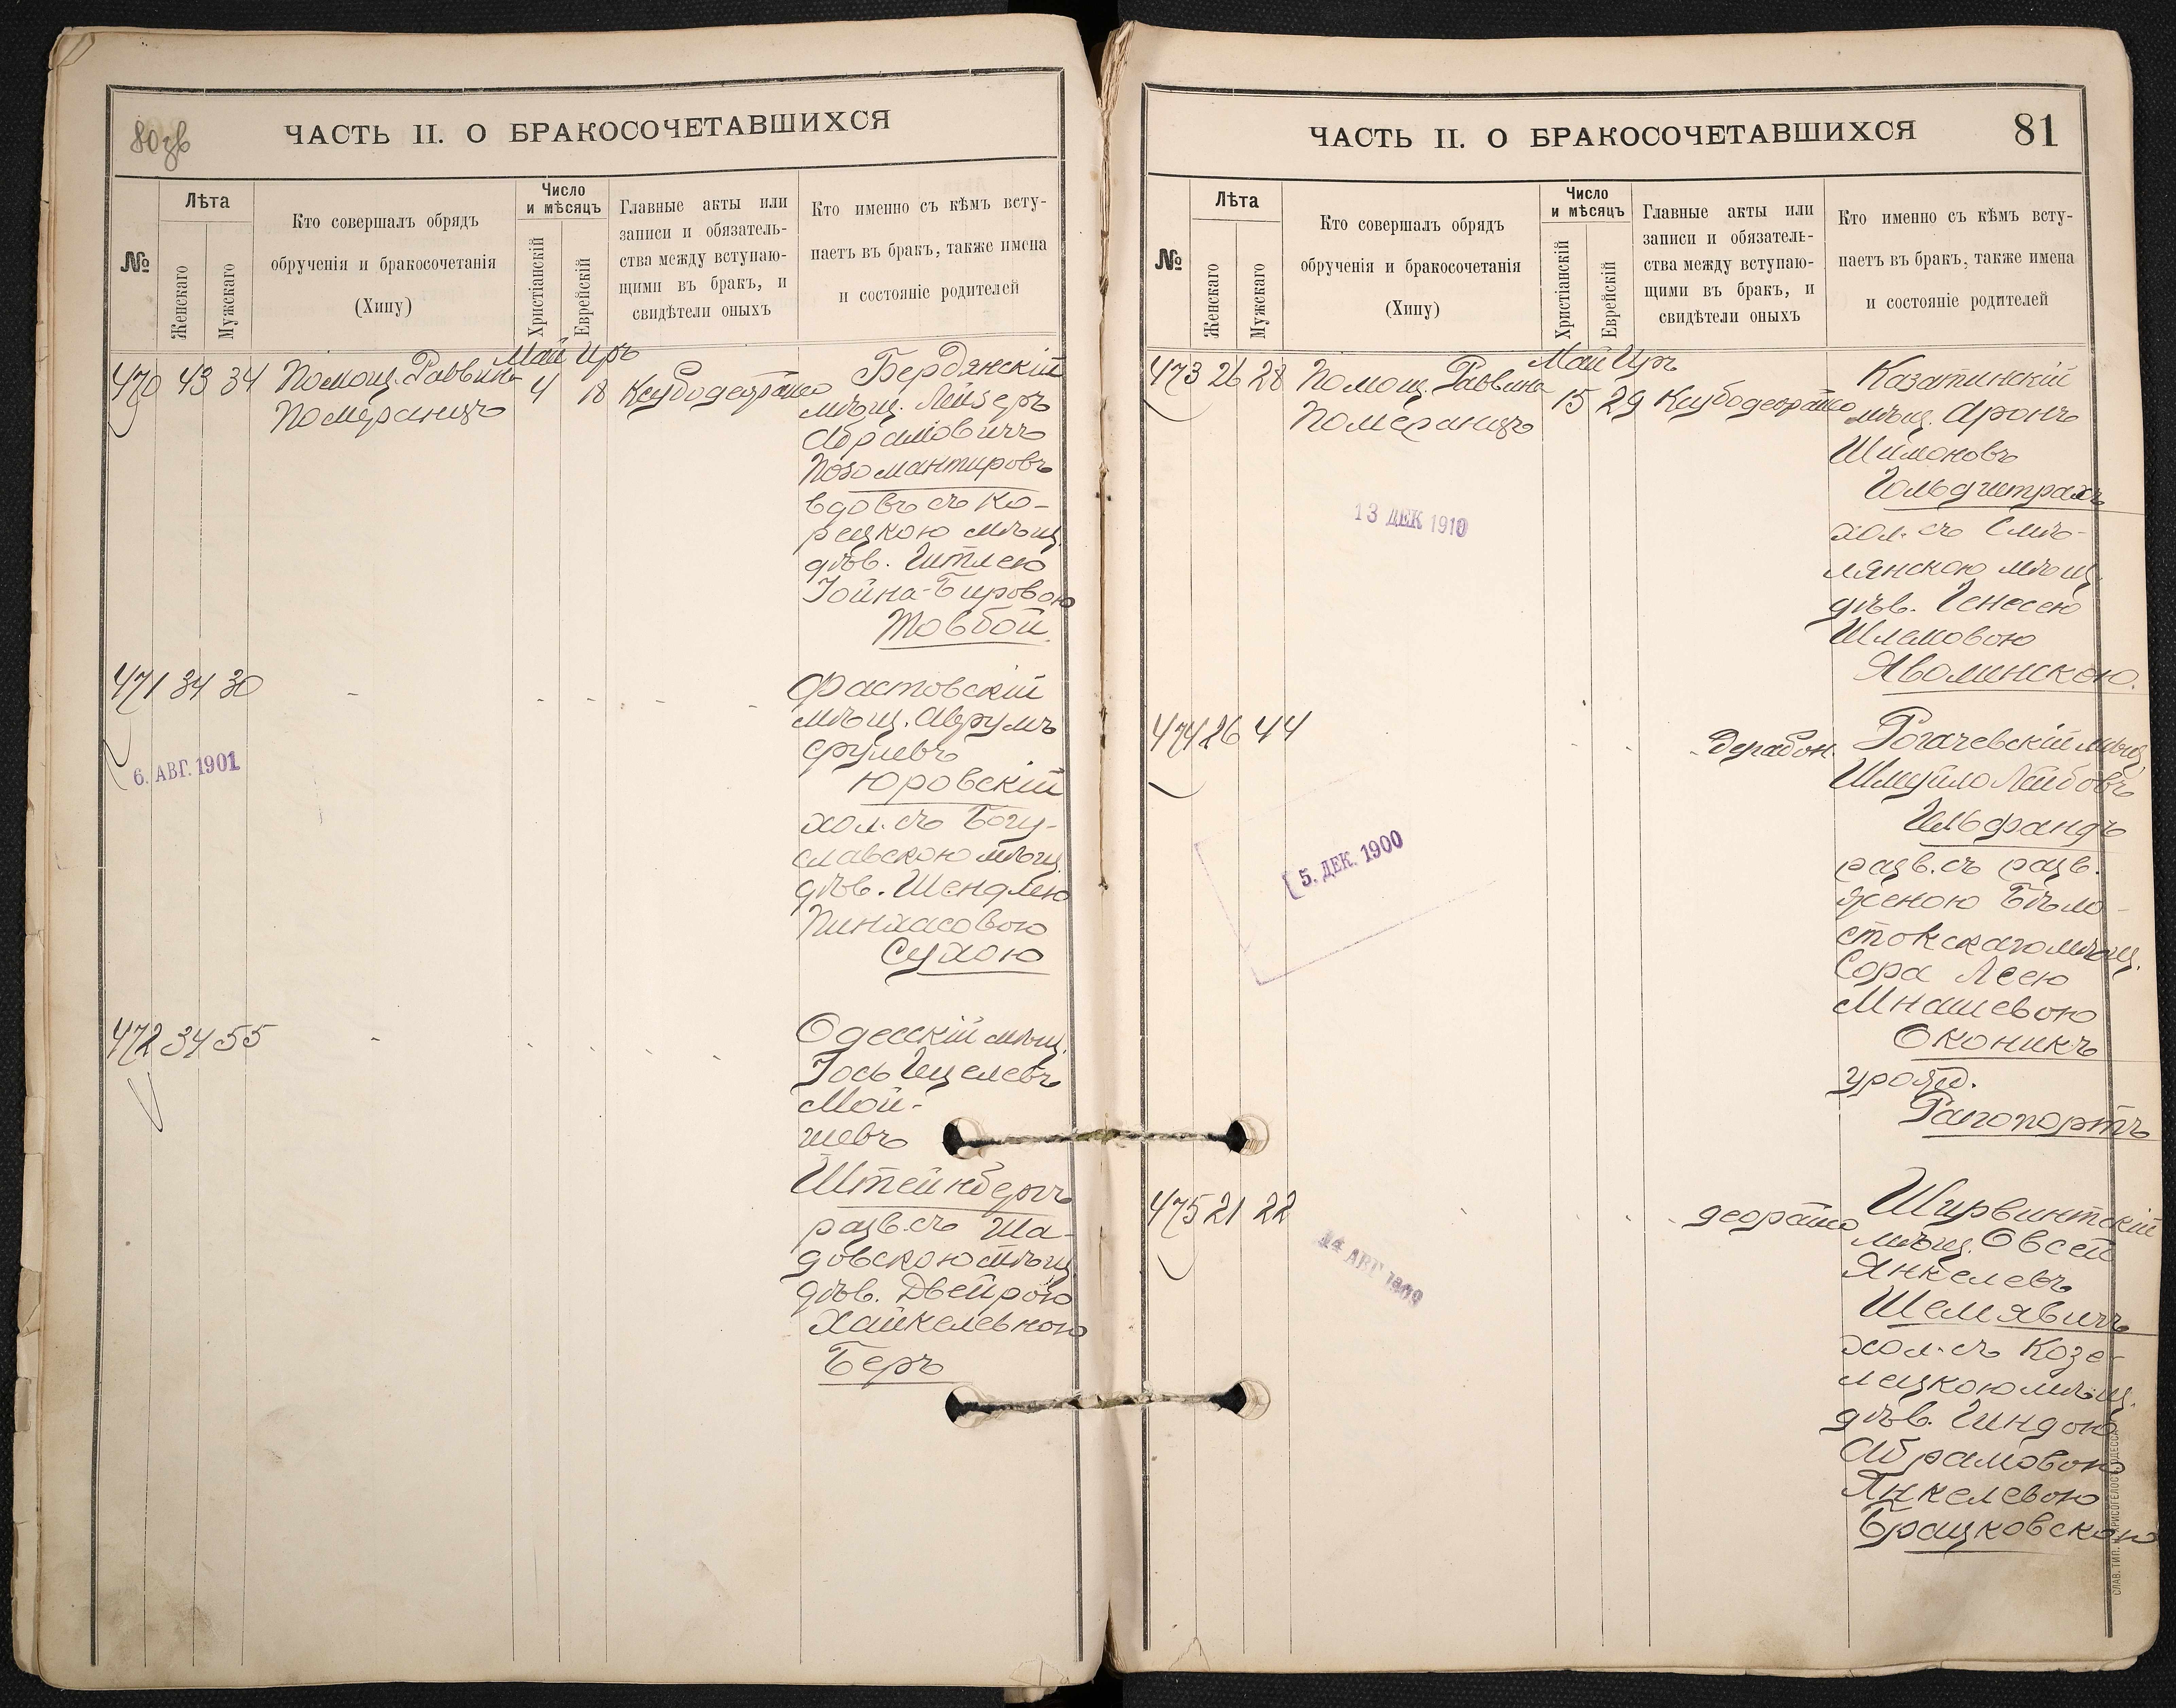 80 зв
ЧАСТЬ II. О БРАКОСОЧЕТАВШИХСЯ
№
Лѣта
Женскаго
Мужскаго
Кто совершалъ обрядъ
обрученія и бракосочетанія
(Хипу)
Число
и мѣсяцъ
Христіанскій
Еврейскій
Главные акты или
записи и обязатель-
ства между вступаю-
щими въ бракъ, и
свидѣтели оныхъ
Кто именно съ кѣмъ всту-
паетъ въ бракъ, также имена
и состояніе родителей
470 43 34 Помощ. Раввина
Померанцъ
Май Иръ
4 18 Ксубодеорайсо
Бердянскій
мѣщ. Лейзеръ
Абрамовичъ
Позомантировъ
вдовъ съ Ко-
рецкою мѣщ.
дѣв. Гитлею
Іойна-Бировою
Товбой.
471 34 30 - - - - -
6. АВГ. 1901
Фастовскій
мѣщ. Аврумъ
Срулевъ
Юровскій
хол. съ Богу-
славскою мѣщ.
дѣв. Шендлею
Пинхасовою
Сухою
472 34 55 - - - - -
Одесскій мѣщ.
Іось Гецелевъ
Мой-
шевъ
Штейнбергъ
разв. съ Ша-
довскою мѣщ.
дѣв. Двейрою
Хайкелевною
Беръ
ЧАСТЬ II. О БРАКОСОЧЕТАВШИХСЯ
81
№
Лѣта
Женскаго
Мужскаго
Кто совершалъ обрядъ
обрученія и бракосочетанія
(Хипу)
Число
и мѣсяцъ
Христіанскій
Еврейскій
Главные акты или
записи и обязатель-
ства между вступаю-
щими въ бракъ, и
свидѣтели оныхъ
Кто именно съ кѣмъ всту-
паетъ въ бракъ, также имена
и состояніе родителей
473 26 28 Помощ. Раввина
Померанцъ
Май Иръ
15 29 Ксубодеорайсо
13 ДЕК 1910
Казатинскій
мѣщ. Аронъ
Шимоновъ
Гольдштрахъ
хол. съ Смѣ-
лянскою мѣщ.
дѣв. Генесею
Шлемовою
Яволинскою.
474 26 44 - - Дерабон.
5. ДЕК. 1900
Рогачевскій мѣщ.
Шмуйло Лейбовъ
Гельфандъ
разв. съ разв.
женою Бѣло-
стокскаго мѣщ.
Сора Леею
Мнашевою
Оконикъ
урожд.
Рапопортъ
475 21 22 - - - - деорайсо
14 АВГ 1909
Ширвинтскій
мѣщ. Овсей
Янкелевъ
Шемявичъ
хол. съ Козе-
лецкою мѣщ.
дѣв. Гиндою
Абрамовою
Янкелевою
Брацковскою
СЛАВ. ТИП. Н. ХРИСОГЕЛОСЪ, ОДЕССА